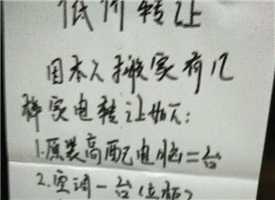 低价转让
因本人搬家有几
样家电转让如下:
1.原装高配电脑=台
2.空调一台(立柜)